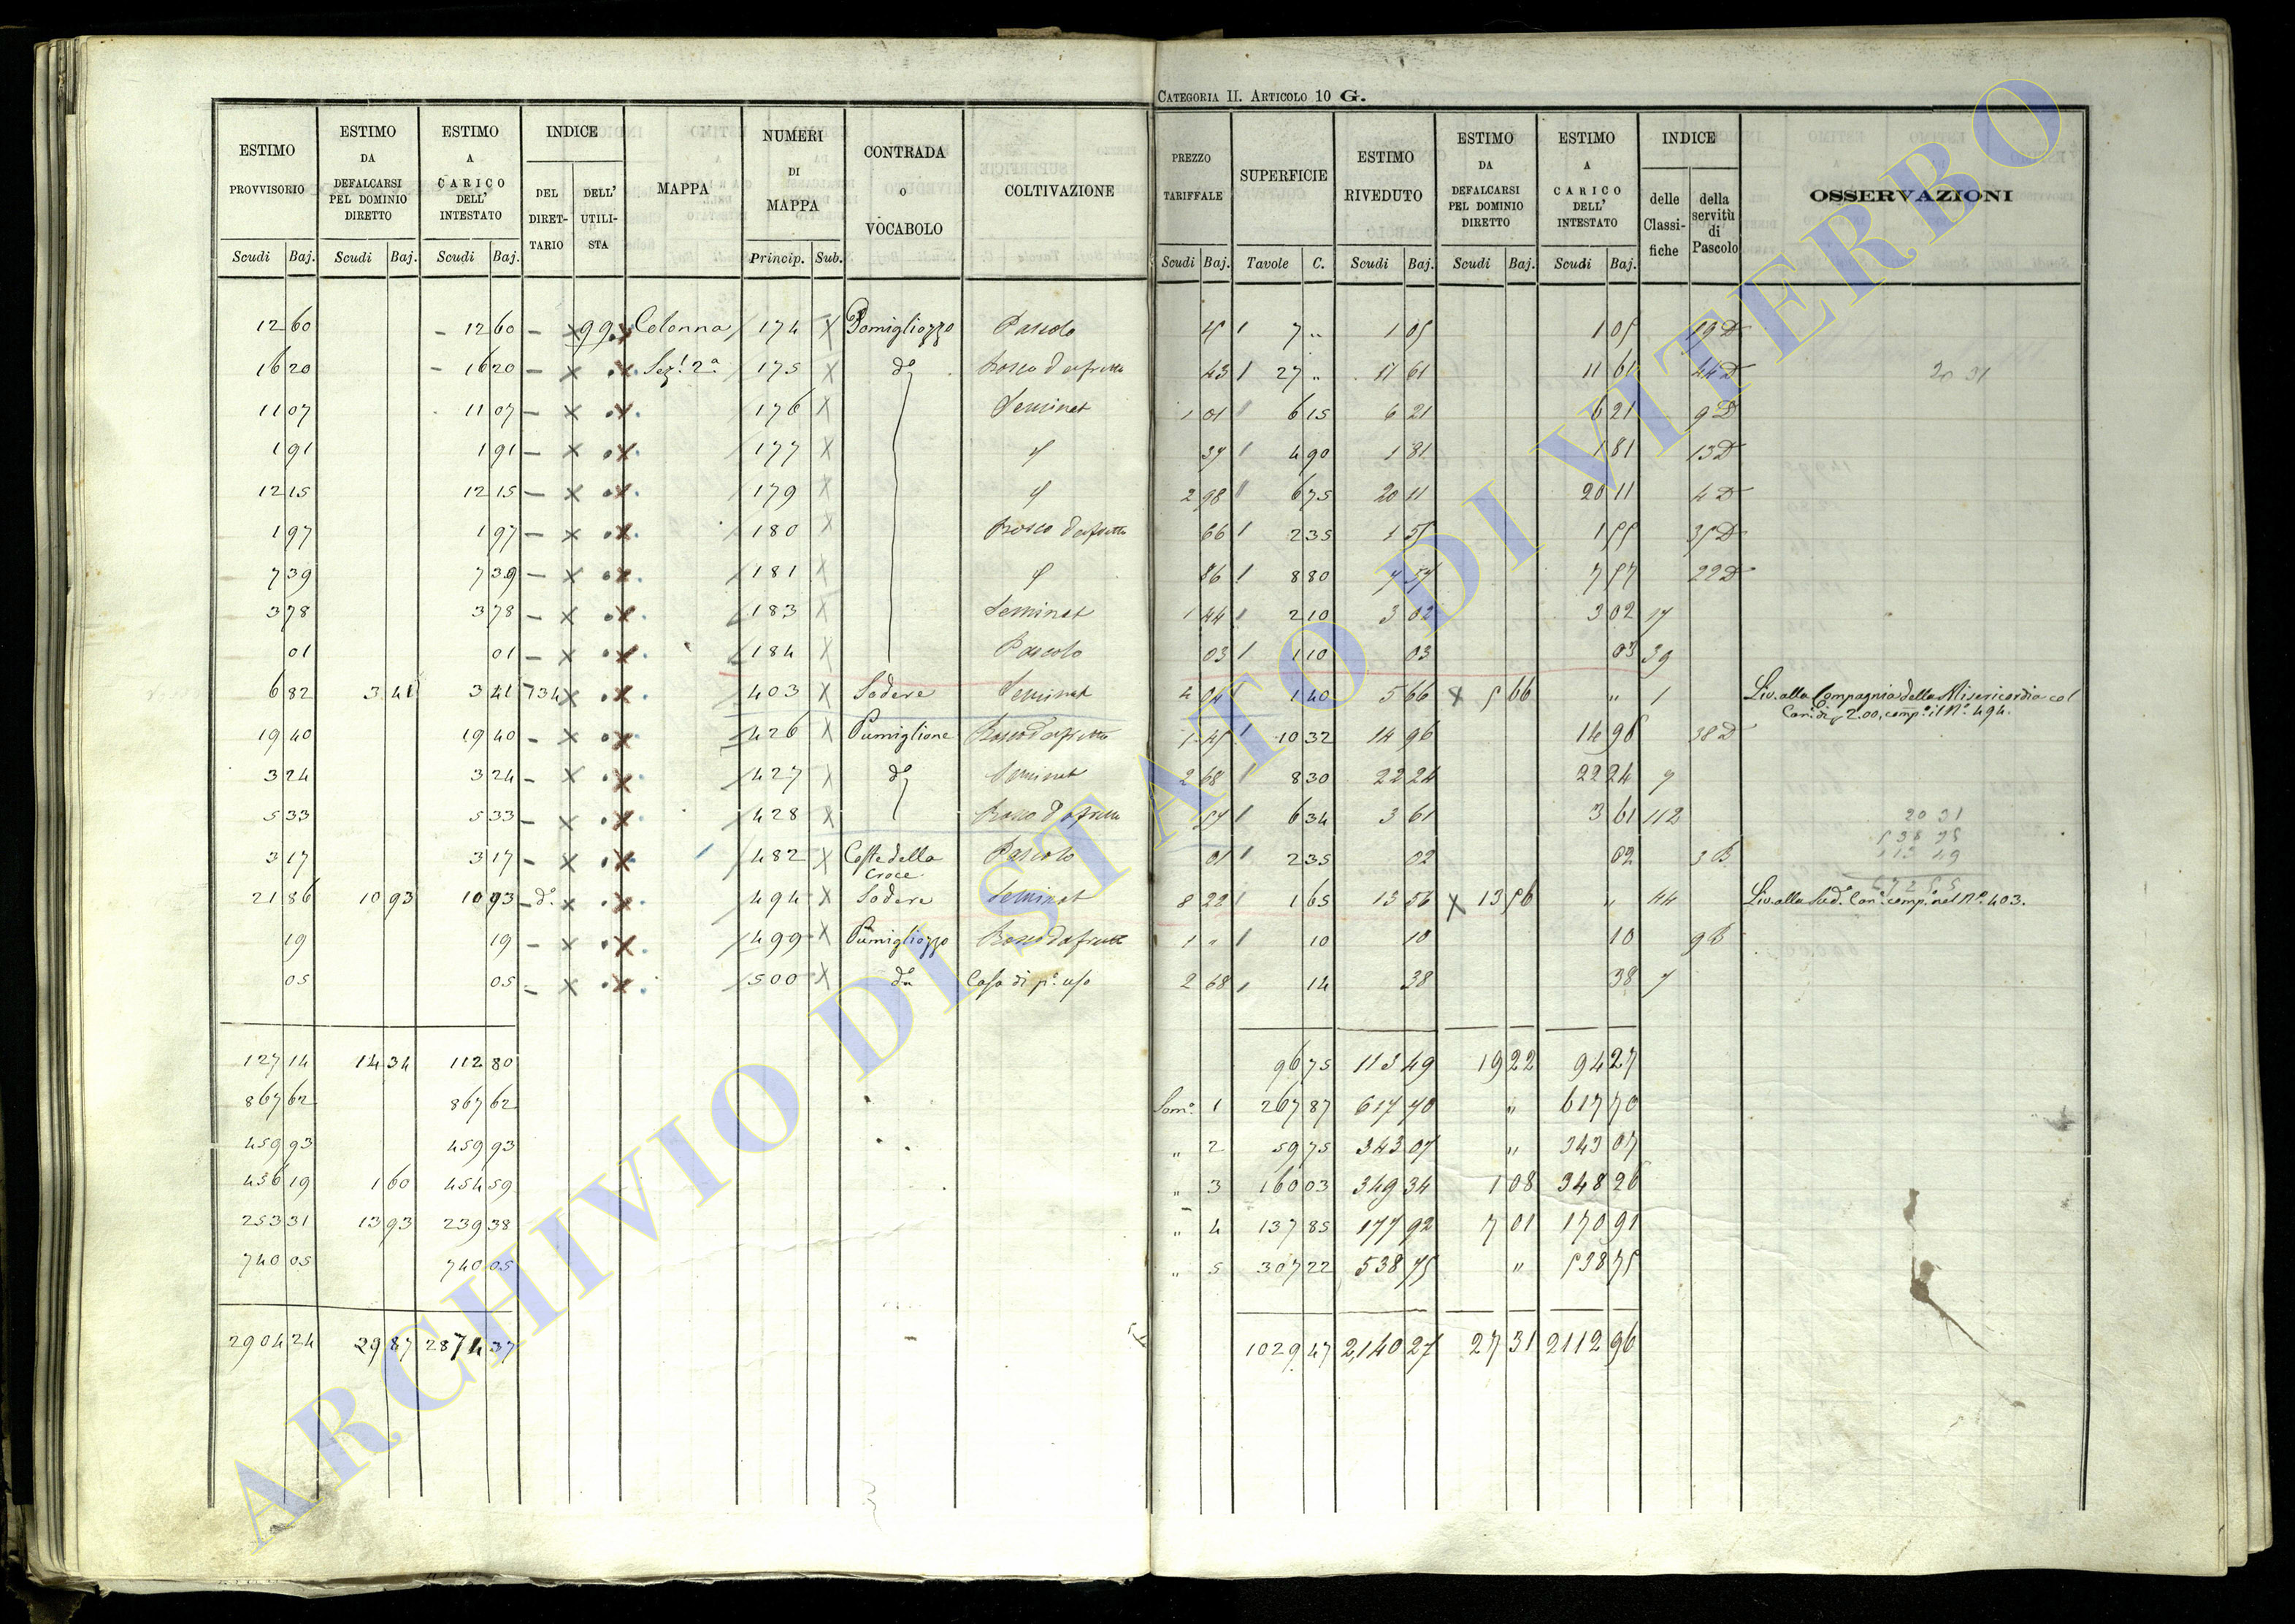 CATEGORIA II. ARTICOLO 10 G.
ESTIMO PROVVISORIO Scudi Baj.
ESTIMO DA DEFALCARSI PEL DOMINIO DIRETTO Scudi Baj.
ESTIMO A CARICO DELL' INTESTATO Scudi Baj.
INDICE DEL DIRETTARIO DELL' UTILISTA
MAPPA
NUMERI DI MAPPA Princip. Sub.
CONTRADA o VOCABOLO
COLTIVAZIONE
PREZZO TARIFFALE Scudi Baj.
SUPERFICIE Tavole C.
ESTIMO RIVEDUTO Scudi Baj.
ESTIMO DA DEFALCARSI PEL DOMINIO DIRETTO Scudi Baj.
ESTIMO A CARICO DELL' INTESTATO Scudi Baj.
INDICE delle Classifiche della servitù di Pascolo
OSSERVAZIONI
12 60 – 12 60 – x 99 x Colonna 174 X Pomigliozzo Pascolo 15 7 " 1 05 1 05 19 D
16 20 – 16 20 – x x Sez. 2ª 175 X do 43 27 " 11 61 11 61 44 D 20 31
11 07 11 07 – x x 176 X Seminat 1 01 6 15 6 21 6 21 9 D
1 91 1 91 – x x 177 X 37 4 90 1 81 1 81 13 D
12 15 12 15 – x x 179 X 2 98 6 75 20 11 20 11 4 D
1 97 1 97 – x x 180 X 66 2 35 1 55 1 55 35 D
7 39 7 39 – x x 181 X 86 8 80 7 57 7 57 22 D
3 78 3 78 – x x 183 X Seminat 1 44 2 10 3 02 3 02 17
01 01 – x x 184 X Pascolo 03 1 10 03 03 39
6 82 3 41 3 41 734 x x 403 X Sodere Seminat 4 04 1 40 5 66 x 5 66 " 1 Liv. alla Compagnia della Misericordia col
Can. di 2.00, comp. il N° 494.
19 40 19 40 – x x 426 X Pumiglione 1 45 10 32 14 96 14 96 38 D
3 24 3 24 – x x 427 X do Seminat 2 68 8 30 22 24 22 24 7
5 33 5 33 – x x 428 X 57 6 34 3 61 3 61 112 20 31
538 75
113 49
3 17 3 17 – x x 482 X Coste della Croce Pascolo 01 2 35 02 02 3 B
672 55
21 86 10 93 10 93 do x x 494 X Sodere Seminat 8 22 1 65 13 56 x 13 56 " 44 Liv. alla Sud. Can. comp. nel N° 403.
19 19 – x x 499 X Pumigliozzo 1 " 10 10 10 9 B
05 05 – x x 500 X do Casa di p. uso 2 68 14 38 38 7
127 14 14 34 112 80 96 75 113 49 19 22 94 27
867 62 867 62 Som. 1 267 87 617 70 " 617 70
459 93 459 93 " 2 59 75 343 07 " 343 07
456 19 1 60 454 59 " 3 160 03 349 34 1 08 348 26
253 31 13 93 239 38 " 4 137 85 177 92 7 01 170 91
740 05 740 05 " 5 307 22 538 75 " 538 75
2904 24 29 87 2874 37 1029 47 2140 27 27 31 2112 96
ARCHIVIO DI STATO DI VITERBO